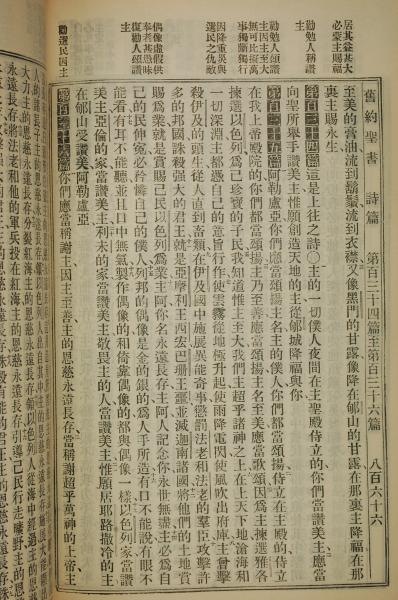 舊約聖書 詩篇 第百三十四篇至第百三十六篇 八百六十六
居其益甚大
必蒙主賜福
勸勉人稱讚
主
勸勉人頌讚
主因主至大
無可比擬萬
事獨斷獨行
因降重災與
選民之仇敵
偶像虛假供
奉者甚愚昧
復勸人頌讚
主
勸選民因主
至美的膏油流到鬍鬚流到衣襟又像黑門的甘露像降在郇山的甘露在那裏主降福在那
裏主賜永生
第百三十四篇這是上往之詩○主的一切僕人夜間在主聖殿侍立的你們當讚美主應當
向聖所舉手讚美主惟願創造天地的主從郇城降福與你
第百三十五篇阿勒盧亞你們應當頌揚主名主的僕人你們都當頌揚侍立在主殿的侍立
在我上帝殿院的你們都當頌揚主乃至善應當頌揚主名至美應當歌頌因爲主揀選雅各
揀選以色列爲己珍寶的子民我知道惟主至大我們主超乎諸神之上在上天下地滄海和
一切深淵主都憑自己的意旨行作使雲霧從地極升起使雨降電閃使風吹出府庫主曾擊
殺伊及的頭生從人直到畜類在伊及國中施展異能奇事懲罰法老和法老的羣臣攻擊許
多的邦國誅殺强大的君王就是亞摩利王西宏巴珊王噩並滅迦南諸國將他們的土地賞
賜爲業就是賞賜己民以色列爲業主阿你名永遠長存主阿人記念你永世無盡主必爲自
己的民伸寃必矜憐自己的僕人列邦的偶像是金的銀的爲人手所造有口不能說有眼不
能看有耳不能聽並且口中無氣製作偶像的和倚靠偶像的都與偶像一樣以色列家當讚
美主亞倫的家當讚美主利未的家當讚美主敬畏主的人當讚美主惟願居耶路撒冷的主
在郇山受讚美阿勒盧亞
第百三十六篇你們應當稱謝主因主至善主的恩慈永遠長存當稱謝超乎萬神的上帝主